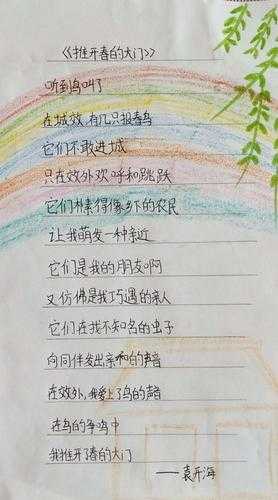 《推开春的大门》
听到鸟叫了
在城效,有几只报春鸟
它们不敢进城
只在效外欢呼和跳跃
它们朴素得像乡下的农民
让我萌发一种亲近
它们是我的朋友啊
又仿佛是我巧遇的亲人
它们在找不知名的虫子
向同伴发出亲和的声音
在效外,我爱上了鸟的声音
在鸟的争鸣中
我推开了春的大门
——袁开海